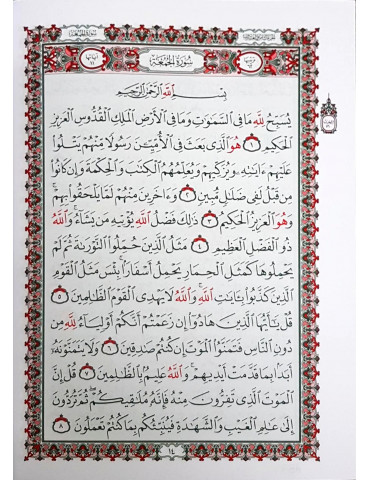 سُورَةُ الْجُمُعَةِ
بِسْمِ اللَّهِ الرَّحْمَٰنِ الرَّحِيمِ
يُسَبِّحُ لِلَّهِ مَا فِي السَّمَٰوَٰتِ وَمَا فِي الْأَرْضِ الْمَلِكِ الْقُدُّوسِ الْعَزِيزِ
الْحَكِيمِ ١ هُوَ الَّذِي بَعَثَ فِي الْأُمِّيِّينَ رَسُولًا مِنْهُمْ يَتْلُوا
عَلَيْهِمْ ءَايَٰتِهِ وَيُزَكِّيهِمْ وَيُعَلِّمُهُمُ الْكِتَٰبَ وَالْحِكْمَةَ وَإِنْ كَانُوا
مِنْ قَبْلُ لَفِي ضَلَٰلٍ مُبِينٍ ٢ وَءَاخَرِينَ مِنْهُمْ لَمَّا يَلْحَقُوا بِهِمْ
وَهُوَ الْعَزِيزُ الْحَكِيمُ ٣ ذَٰلِكَ فَضْلُ اللَّهِ يُؤْتِيهِ مَنْ يَشَاءُ وَاللَّهُ
ذُو الْفَضْلِ الْعَظِيمِ ٤ مَثَلُ الَّذِينَ حُمِّلُوا التَّوْرَىٰةَ ثُمَّ لَمْ
يَحْمِلُوهَا كَمَثَلِ الْحِمَارِ يَحْمِلُ أَسْفَارًا بِئْسَ مَثَلُ الْقَوْمِ
الَّذِينَ كَذَّبُوا بِـَٔايَٰتِ اللَّهِ وَاللَّهُ لَا يَهْدِي الْقَوْمَ الظَّٰلِمِينَ ٥
قُلْ يَٰأَيُّهَا الَّذِينَ هَادُوا إِنْ زَعَمْتُمْ أَنَّكُمْ أَوْلِيَاءُ لِلَّهِ مِنْ
دُونِ النَّاسِ فَتَمَنَّوُا الْمَوْتَ إِنْ كُنْتُمْ صَٰدِقِينَ ٦ وَلَا يَتَمَنَّوْنَهُ
أَبَدًا بِمَا قَدَّمَتْ أَيْدِيهِمْ وَاللَّهُ عَلِيمٌ بِالظَّٰلِمِينَ ٧ قُلْ إِنَّ
الْمَوْتَ الَّذِي تَفِرُّونَ مِنْهُ فَإِنَّهُ مُلَٰقِيكُمْ ثُمَّ تُرَدُّونَ
إِلَىٰ عَٰلِمِ الْغَيْبِ وَالشَّهَٰدَةِ فَيُنَبِّئُكُمْ بِمَا كُنْتُمْ تَعْمَلُونَ ٨
١٤